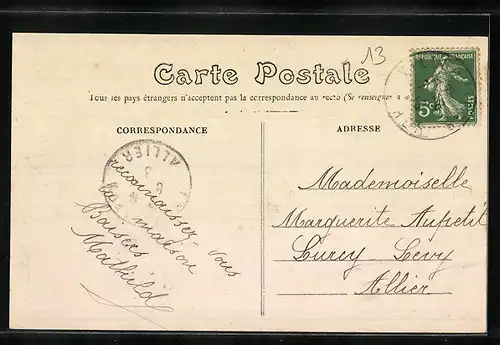 13
Carte Postale
Tous les pays étrangers n'acceptent pas la correspondance au recto (Se renseigner à
CORRESPONDANCE
ADRESSE
REPUBLIQUE FRANÇAISE
5c
POSTES
ALLIER
reconnaissez-vous
la maison
Baisers
Mathilde
Mademoiselle
Marguerite Aufretil
Lurcy Levy
Allier